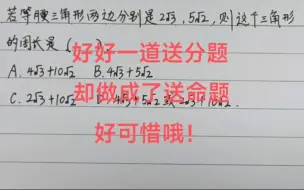 若等腰三角形两边分别是2√3，5√2，则这个三角形
的周长是（
好好一道送分题
A. 4√3+10√2 B. 4√3+5√2
却做成了送命题
C. 2√3+10√2 D. 4√3+5√2或2√3+10√2
好可惜哦！